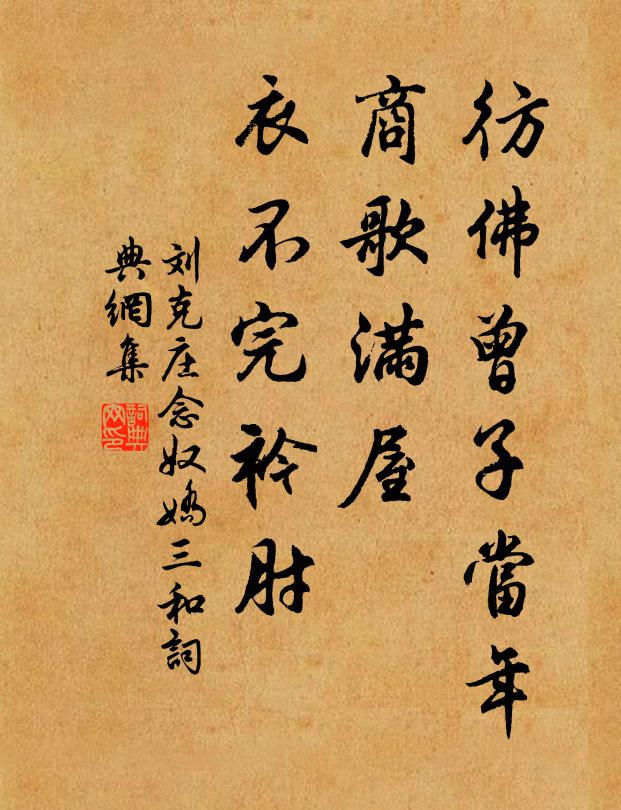 彷佛曾子當年
商歌滿屋
衣不完衿肘
刘克庄念奴嬌三和詞
典網集
詞典
网印